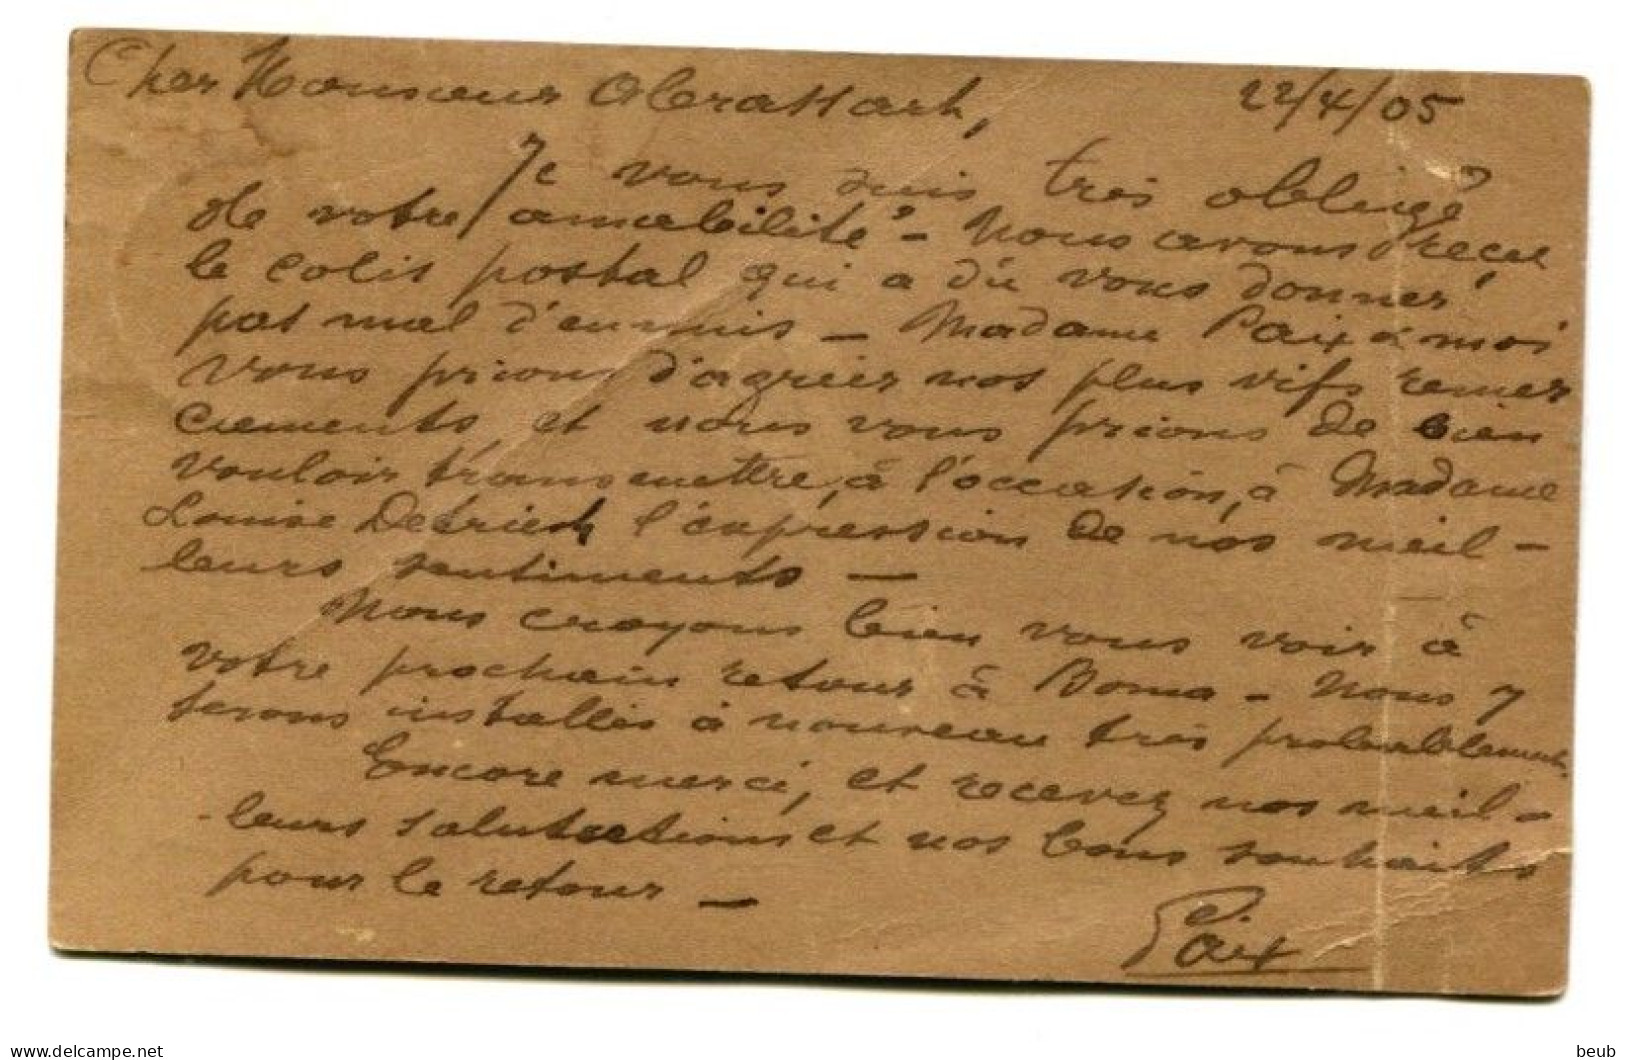 Cher Monsieur
22/4/05
Je vous suis très obligé
de votre amabilité - Nous avons reçu
le colis postal qui a dû vous donner
pas mal d'ennuis - Madame Paix & moi
vous prions d'agréer nos plus vifs remer
ciements, et nous vous prions de bien
vouloir transmettre, à l'occasion, à Madame
Louise l'expression de nos meil-
leurs sentiments -
Nous croyons bien vous voir à
votre prochain retour à Boma - Nous y
serons installés à nouveau très probablement.
Encore merci, et recevez nos meil-
leurs salutations et nos bons souhaits
pour le retour -
Paix
www.delcampe.net
beub